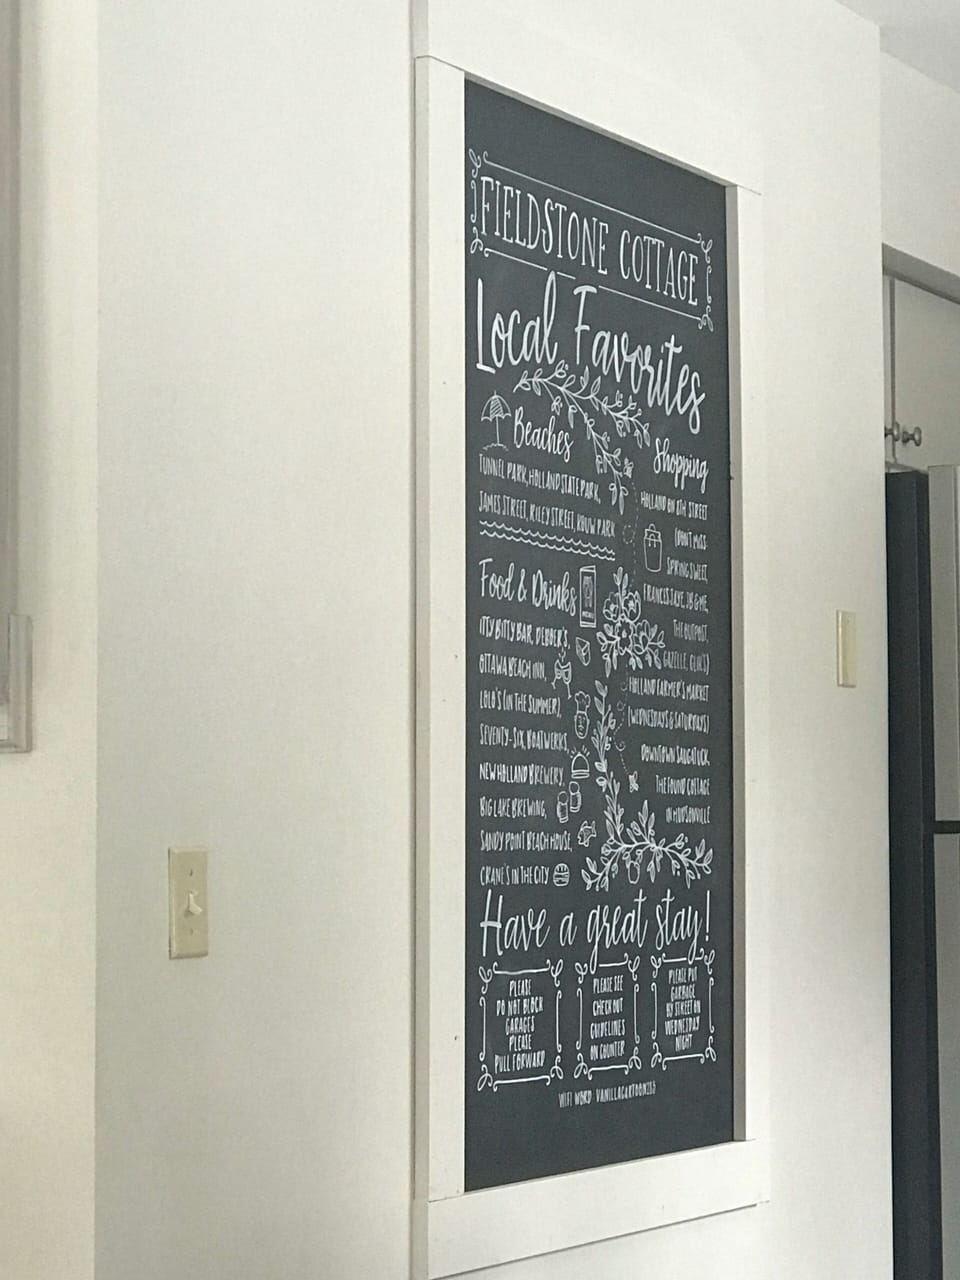 FIELDSTONE COTTAGE
Local Favorites
Beaches
TUNNEL PARK, HOLLAND STATE PARK,
JAMES STREET, RILEY STREET, KOUW PARK
Food & Drinks
ITTY BITTY BAR, DEBOER'S,
OTTAWA BEACH INN,
LOLO'S (IN THE SUMMER),
SEVENTY-SIX, BOATWERKS,
NEW HOLLAND BREWERY,
BIG LAKE BREWING,
SANDY POINT BEACH HOUSE,
CRANE'S IN THE CITY
Shopping
HOLLAND ON 8TH STREET
(DON'T MISS
SPRING SWEET,
FRANCES JAYE, JB & ME,
THE OUTPOST,
GAZELLE,
HOLLAND FARMER'S MARKET
(WEDNESDAYS & SATURDAYS)
DOWNTOWN SAUGATUCK,
THE FOUND COTTAGE
IN HUDSONVILLE
Have a great stay!
PLEASE
DO NOT BLOCK
GARAGES
PLEASE
PULL FORWARD
PLEASE SEE
CHECK OUT
GUIDELINES
ON COUNTER
PLEASE PUT
GARBAGE
BY STREET ON
WEDNESDAY
NIGHT
WIFI WORD